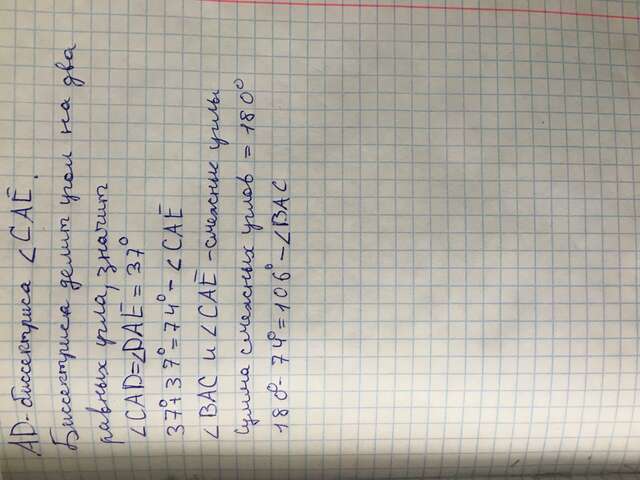 AD-биссектриса ∠CAE.
Биссектриса делит угол на два
равных угла, значит
∠CAD=∠DAE=37°
37°+37°=74° - ∠CAE
∠BAC и ∠CAE - смежные углы
Сумма смежных углов = 180°
180°-74°=106° - ∠BAC